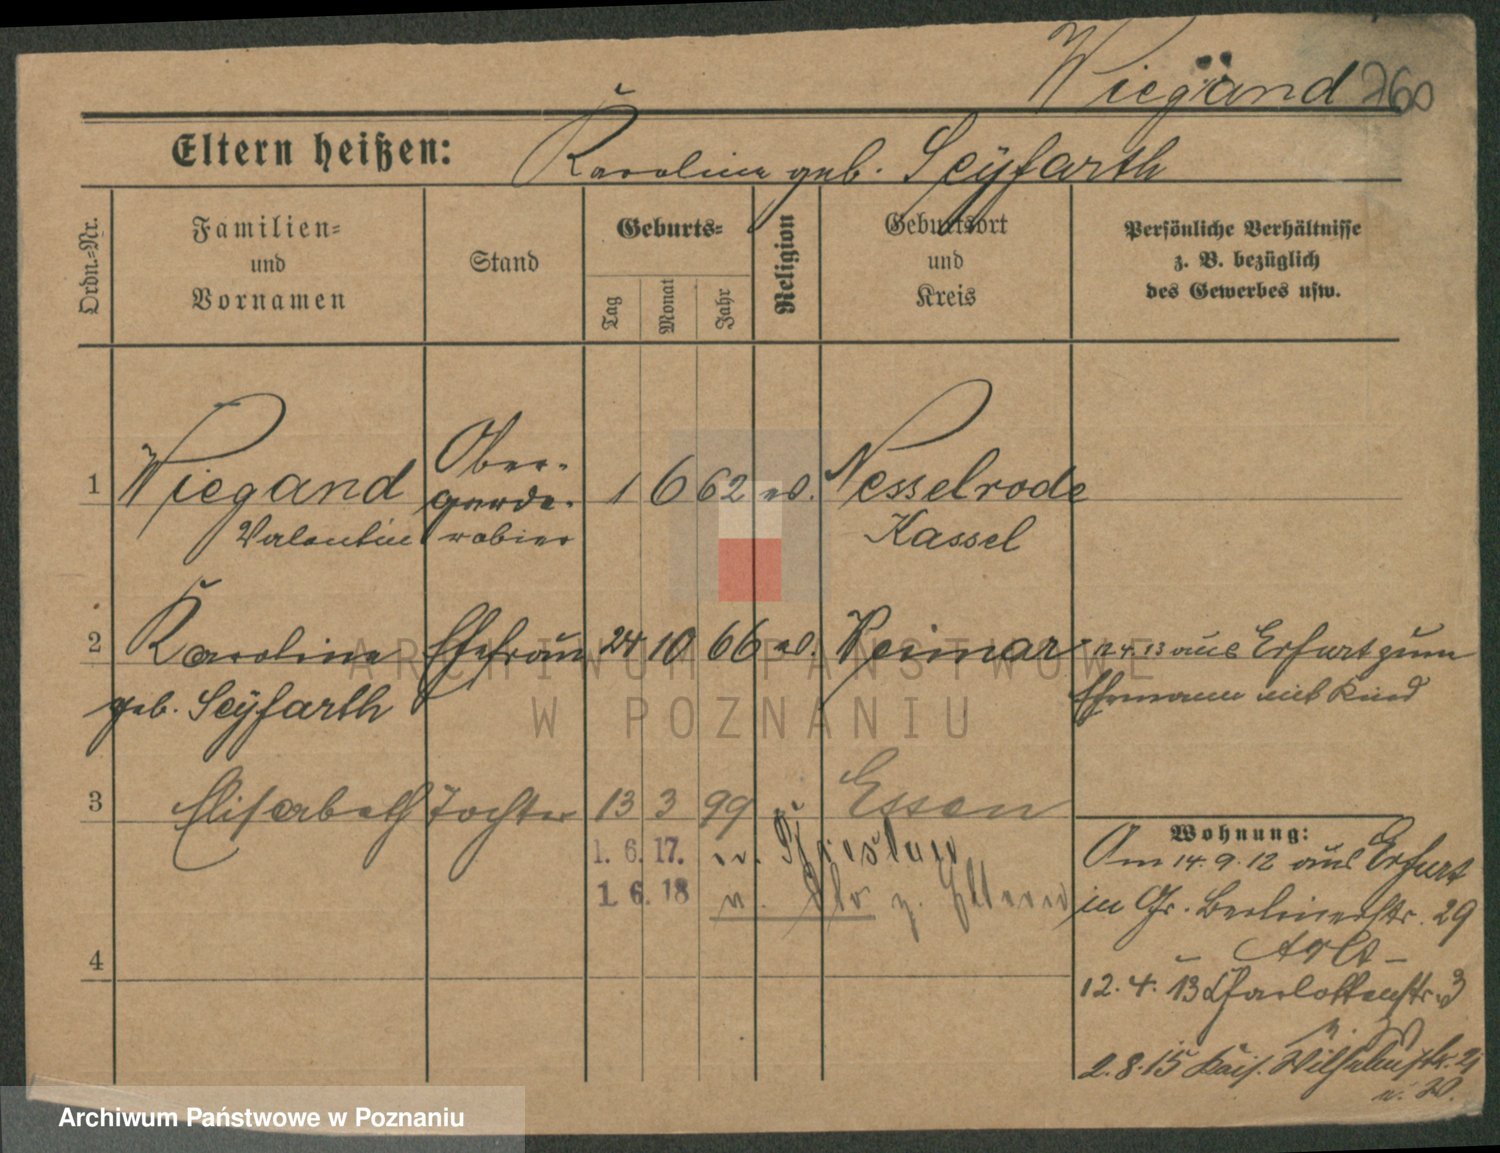 Wiegand 260
Eltern heißen: Karoline geb. Seyfarth
Ordn.-Nr.
Familien-
und
Vornamen
Stand
Geburts-
Tag
Monat
Jahr
Religion
Geburtsort
und
Kreis
Persönliche Verhältnisse
z. B. bezüglich
des Gewerbes usw.
1 Wiegand Ober- 1 6 62 ev. Nesselrode
garde-
Valentin robier Kassel
2 Karoline Ehefrau 24 10 66 ev. Weimar 12 4. 13 aus Erfurt zum
geb. Seyfarth Ehemann mit Kind
3 Elisabeth Tochter 13 3 99 Essen
1. 6. 17. n. Breslau
1. 6. 18 v. z. Eltern
4
Wohnung:
Am 14. 9. 12 aus Erfurt
in Gr. Berlinerstr. 29
12. 4. 13 Charlottenstr. 3
2. 8. 15 Kais. Wilhelmstr. 21
ARCHIWUM PAŃSTWOWE
W POZNANIU
Archiwum Państwowe w Poznaniu